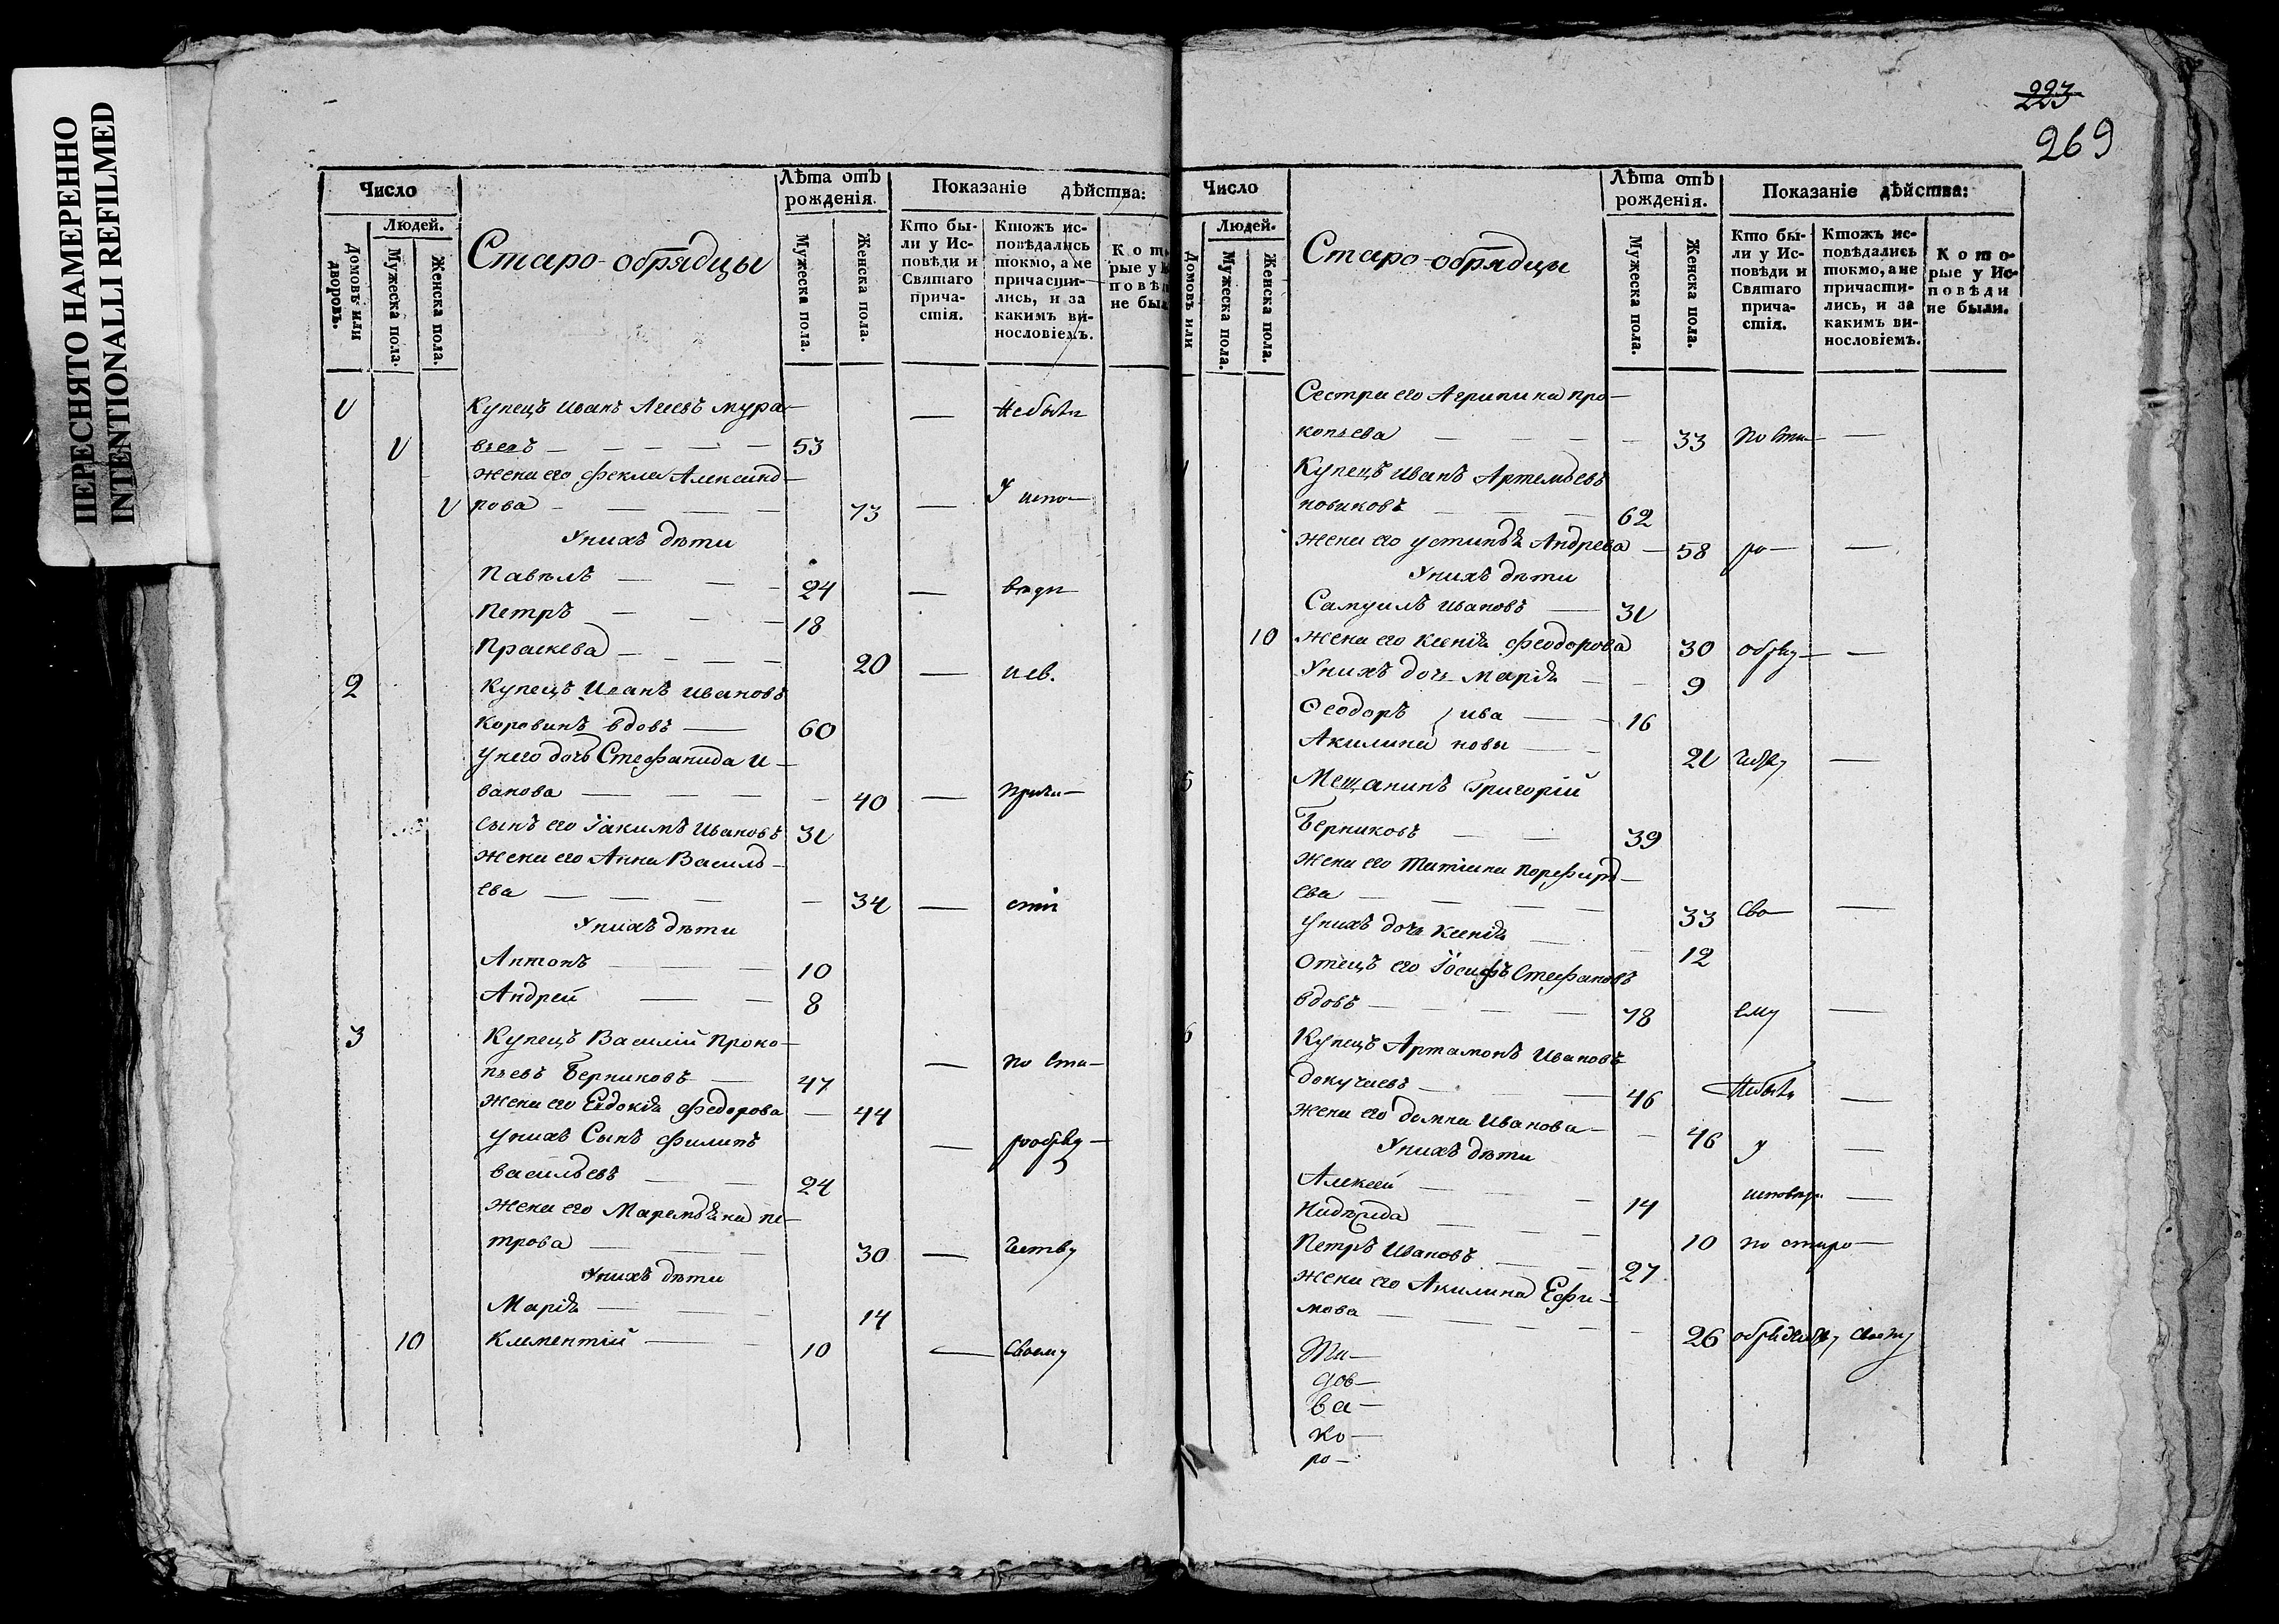 ПЕРЕСНЯТО НАМЕРЕННО
INTENTIONALLI REFILMED
Число
Людей.
Домовъ или дворовъ.
Мужеска пола.
Женска пола.
Старо-обрядцы
Лѣта отъ рожденія.
Мужеска пола.
Женска пола.
Показаніе дѣйства:
Кто бы-
ли у Ис-
повѣди и
Святаго
прича-
стія.
Ктожъ ис-
повѣдались
токмо, а не
причасти-
лись, и за
какимъ ви-
нословіемъ.
Кот
рые у
повѣ
не был
Купецъ Иванъ Леевъ мура- — Небыли
вьевъ — 53
жена его Фекла Александ-
рова — 73 — У испо-
У нихъ дѣти
Павелъ — 24 — вѣди
Петръ — 18
Праскева — 20 —
2 Купецъ Иванъ Ивановъ
Коровинъ вдовъ — 60
У него дочь Стефанида И-
ванова — 40 — прича-
сынъ его Іакимъ Ивановъ 31
жена его Анна Василь-
ева — 34 — стія
У нихъ дѣти
Антонъ — 10
Андрей — 8
3 Купецъ Василій Проко- — по Ста-
пьевъ Берниковъ — 47
жена его Евдокія Федорова — 44
у нихъ Сынъ Филипъ — рообряд-
васильевъ — 24
жена его Маремьяна пе-
трова — 30 — честву
У нихъ дѣти
Марія — 14
10 Климентій — 10 — Своему
223
269
Число
Людей.
Домовъ или
Мужеска пола.
Женска пола.
Старо-обрядцы
Лѣта отъ рожденія.
Мужеска пола.
Женска пола.
Показаніе дѣйства:
Кто бы-
ли у Ис-
повѣди и
Святаго
прича-
стія.
Ктожъ ис-
повѣдались
токмо, а не
причасти-
лись, и за
какимъ ви-
нословіемъ.
Кото-
рые у Ис-
повѣди
не были.
Сестра его Агрипина про-
копьева — 33 по Ста- —
Купецъ Иванъ Артемьевъ
новиковъ — 62
жена его устинья Андрева — 58 ро- —
У нихъ дѣти
Самуилъ Ивановъ — 31
10 жена его Ксенія Феодорова 30 обряд- —
У нихъ дочь Марія — 9
Феодоръ } ива — 16
Акилина новы — 21 —
5 Мещанинъ Григорій
Берниковъ — 39
жена его Татіана Порфирь-
ева — 33 Сво- —
У нихъ дочь Ксенія — 12
Отецъ его Іосифъ Стефановъ
вдовъ — 78 ему —
6 Купецъ Артамонъ Ивановъ
докучаевъ — 46 Небыли —
жена его домна Иванова — 46 у —
У нихъ дѣти
Алексей — 14 исповѣди —
10 по старо-
Петръ Ивановъ — 27
жена его Акилина Ефи-
мова — 26 своему
дов-
ва-
ко-
ро-